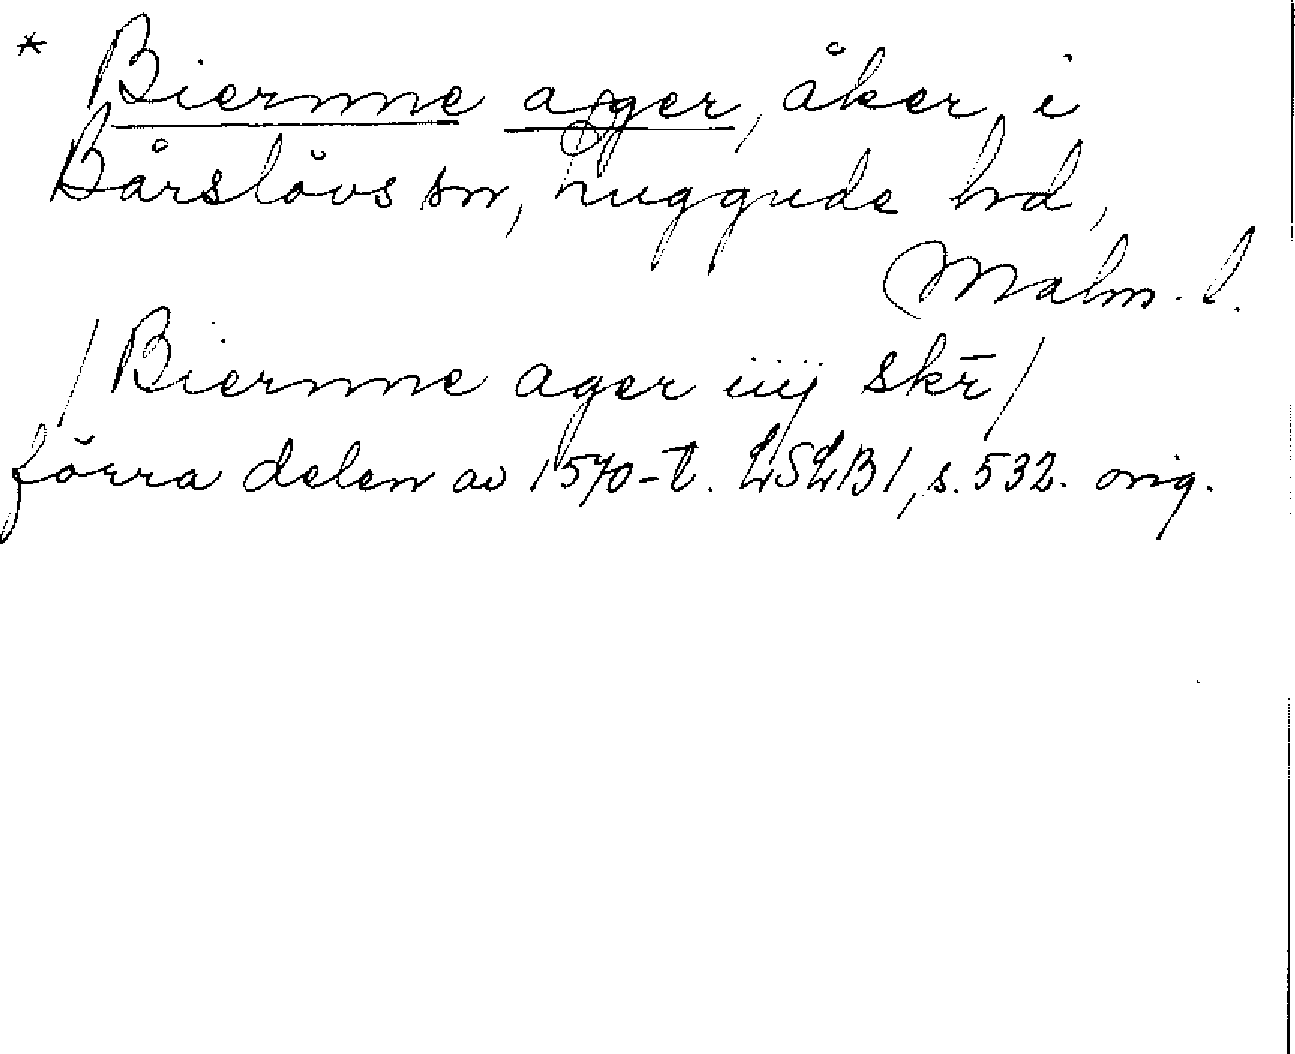 * Biernne ager, åker i
Bårslövs sn, Luggude hd,
Malm. l.
/Biernne ager iiij skr̄/
förra delen av 1570-t. LSLB1, s. 532. orig.